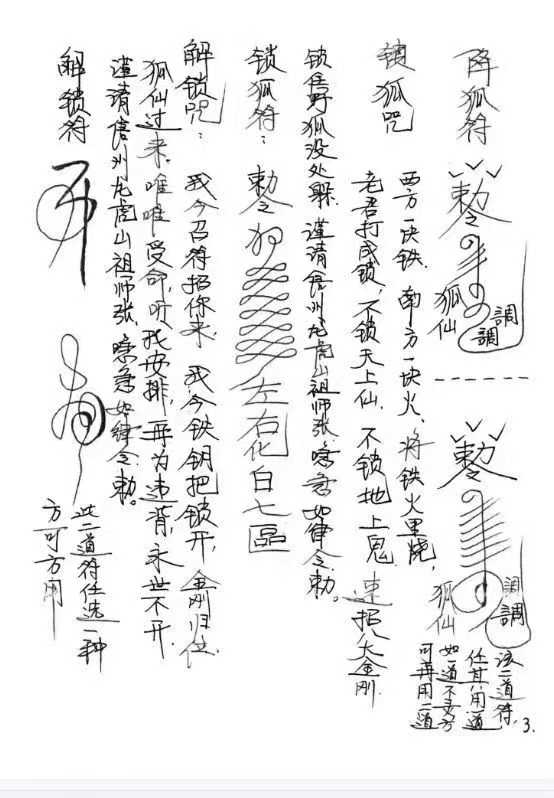 降狐符
勅令
狐仙
調
調
勅令
狐仙
調
調
该二道符,
任其用一道
如一道不灵方
可再用二道
3.
锁狐咒
西方一块铁、南方一块火、将铁火里烧,
老君打成锁、不锁天上仙、不锁地上鬼 速招八大金刚
锁住野狐没处躲、谨请信州龙虎山祖师张、嗪急如律令勅。
锁狐符:
勅令
左右化白七區
解锁咒:
我今召符招你来、我今铁钥把锁开、金刚归位
狐仙过来、唯唯受命、听我安排、再为违背、永世不开.
谨请信州龙虎山祖师张、嗪急如律令、勅。
解锁符
此二道符任选一种
方可方用